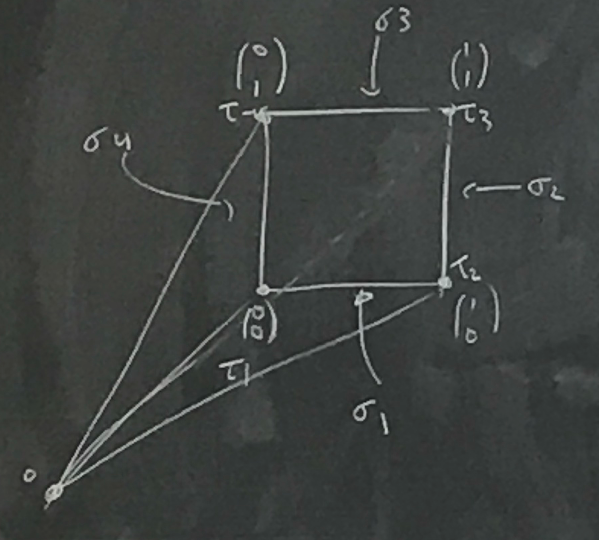 σ3
(0 1)
(1 1)
τ
τ3
σ4
σ2
τ2
(0 0)
(1 0)
τ1
σ1
0